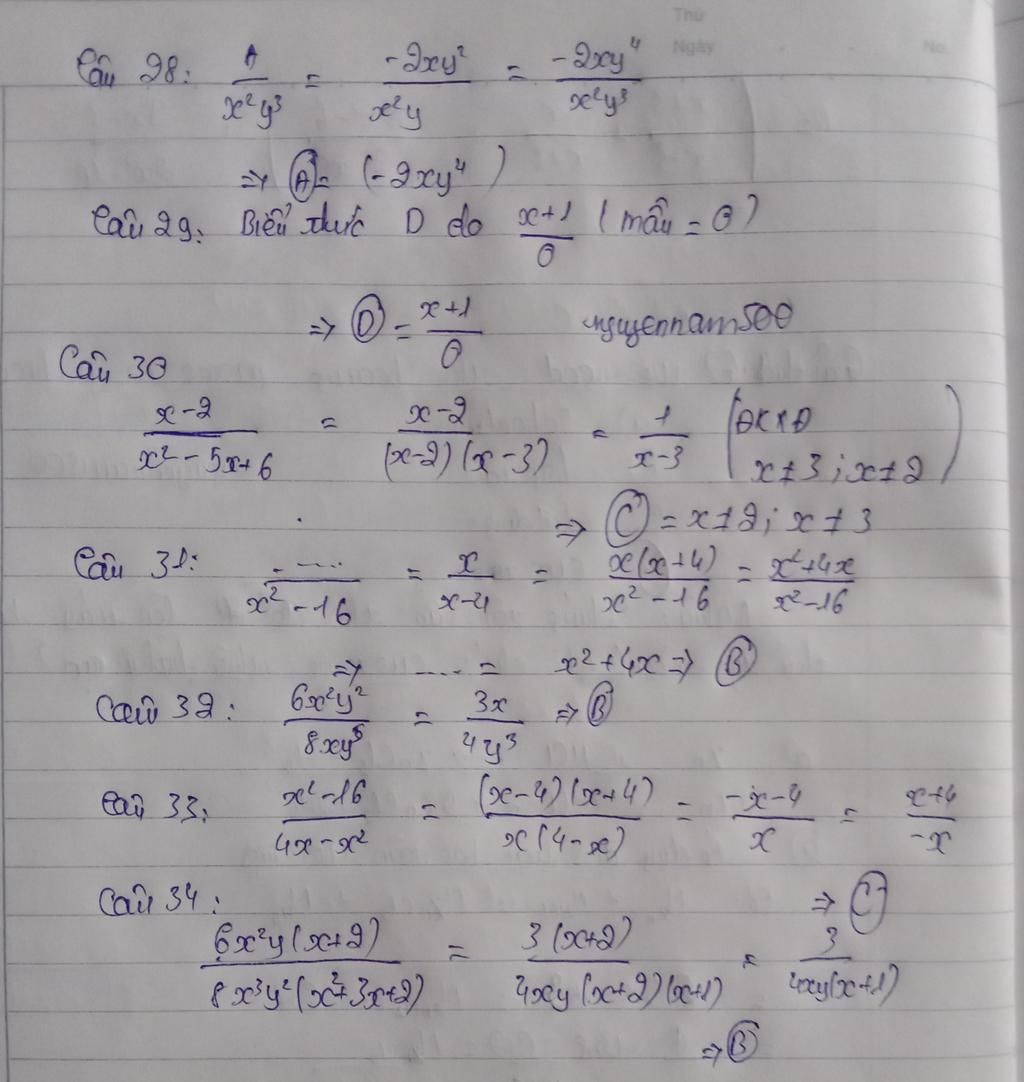 Thứ
Ngày No.
Câu 28: A/(x²y³) = (-2xy²)/(x²y) = (-2xy⁴)/(x²y³)
=> Ⓐ = (-2xy⁴)
Câu 29: Biểu thức D do (x+1)/0 (mẫu = 0)
=> Ⓓ = (x+1)/0 nguyennam500
Câu 30
(x-2)/(x²-5x+6) = (x-2)/((x-2)(x-3)) = 1/(x-3) (ĐKXĐ x≠3; x≠2)
=> Ⓒ = x≠2; x≠3
Câu 31: ..../(x²-16) = x/(x-4) = x(x+4)/(x²-16) = (x²+4x)/(x²-16)
=> .... = x²+4x => Ⓑ
Câu 32: (6x²y²)/(8xy⁵) = 3x/(4y³) => Ⓑ
Câu 33: (x²-16)/(4x-x²) = ((x-4)(x+4))/(x(4-x)) = (-x-4)/x = (x+4)/(-x)
=> Ⓒ
Câu 34:
(6x²y(x+2))/(8x³y²(x²+3x+2)) = (3(x+2))/(4xy(x+2)(x+1)) = 3/(4xy(x+1))
=> Ⓑ